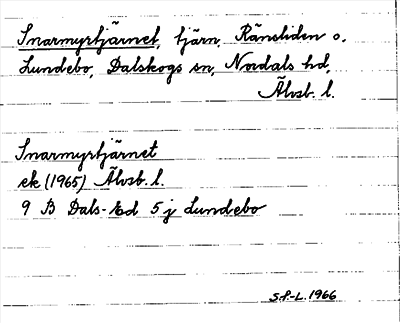 Snarmyrtjärnet, tjärn, Ränsliden o.
Lundebo, Dalskogs sn, Nordals hd,
Älvsb. l.
Snarmyrtjärnet
ek (1965) Älvsb. l.
9 B Dals-Ed 5 j Lundebo
S.P.-L. 1966